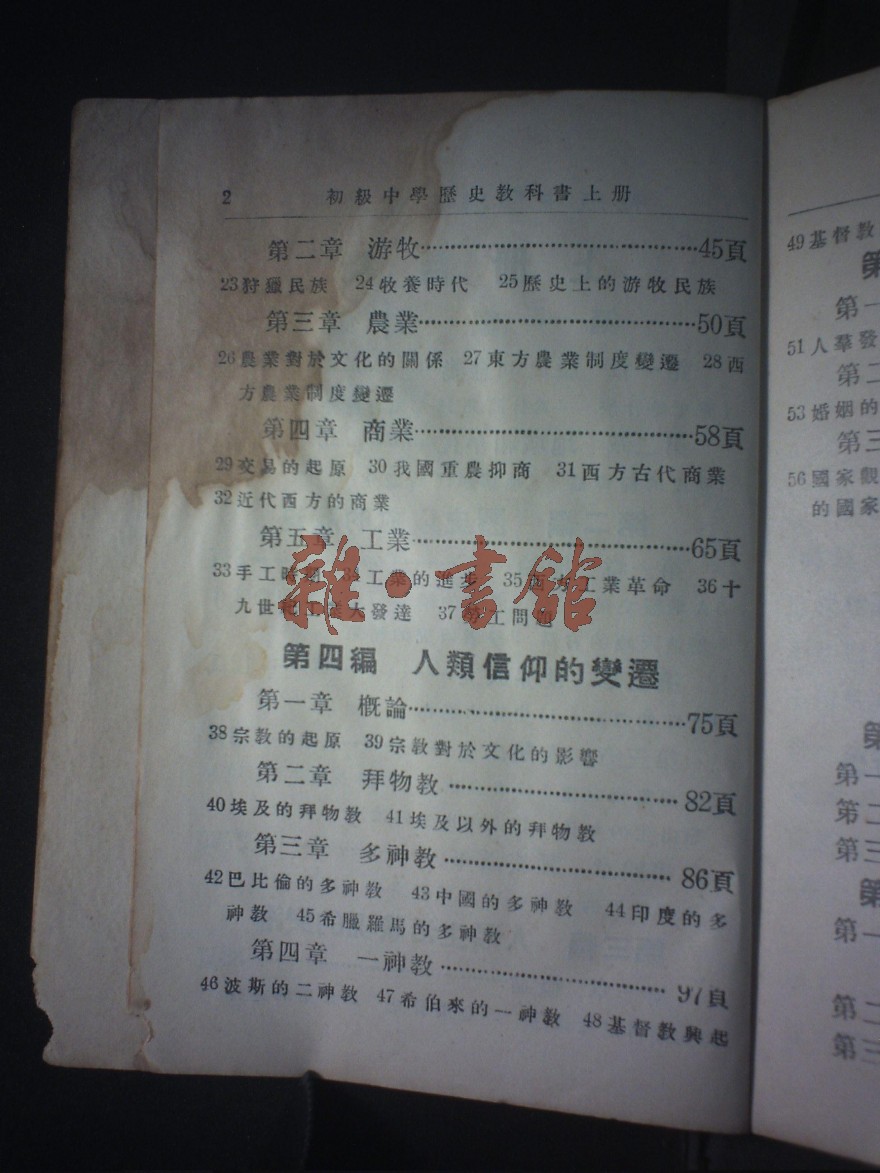 2 初級中學歷史教科書上册
第二章 游牧……45頁
23狩獵民族 24牧養時代 25歷史上的游牧民族
第三章 農業……50頁
26農業對於文化的關係 27東方農業制度變遷 28西
方農業制度變遷
第四章 商業……58頁
29交易的起原 30我國重農抑商 31西方古代商業
32近代西方的商業
第五章 工業……65頁
33手工時 工業的進步 35西方工業革命 36十
九世 大發達 37 工問
雜·書館
第四編 人類信仰的變遷
第一章 概論……75頁
38宗教的起原 39宗教對於文化的影響
第二章 拜物教……82頁
40埃及的拜物教 41埃及以外的拜物教
第三章 多神教……86頁
42巴比倫的多神教 43中國的多神教 44印度的多
神教 45希臘羅馬的多神教
第四章 一神教……97頁
46波斯的二神教 47希伯來的一神教 48基督教興起
49基督教
第
第一
51人羣發
第二
53婚姻的
第三
56國家觀
的國家
第
第一
第二
第三
第
第一
第二
第三